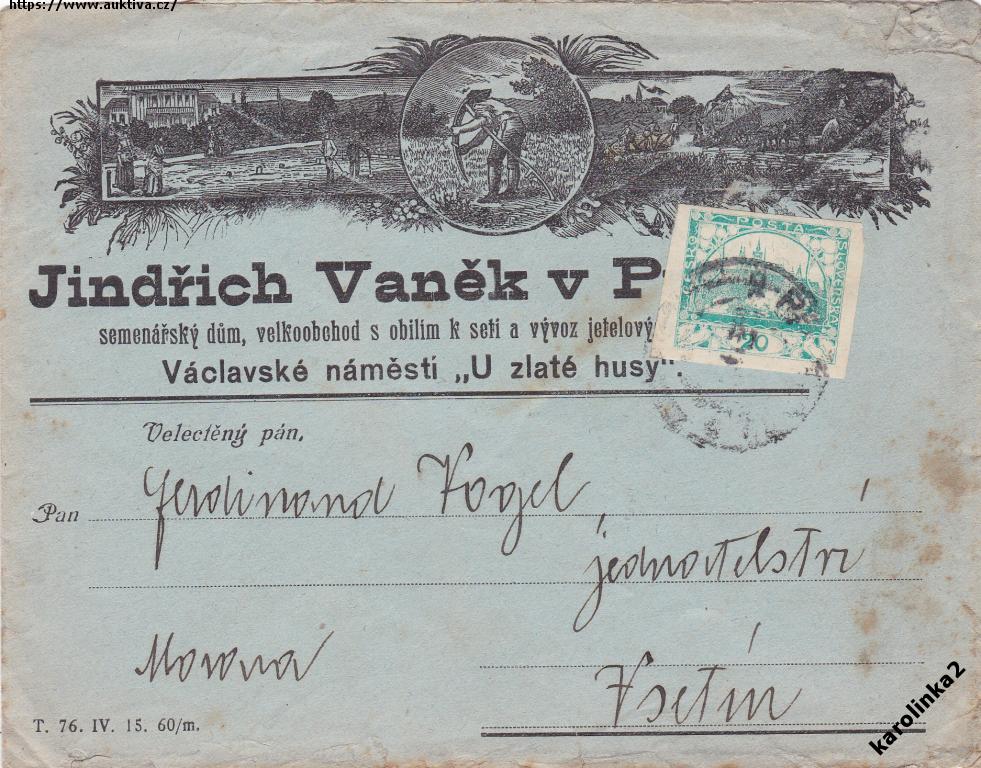 https://www.auktiva.cz/
Jindřich Vaněk v P
semenářský dům, velkoobchod s obilím k seti a vývoz jetelový
Václavské náměstí „U zlaté husy".
POSTA
ČESKO SLOVENSKÁ
20
Velectěný pán,
Pan Ferdinand Vogel,
jednatelství
Morava
Vsetín
T. 76. IV. 15. 60/m.
karolinka2